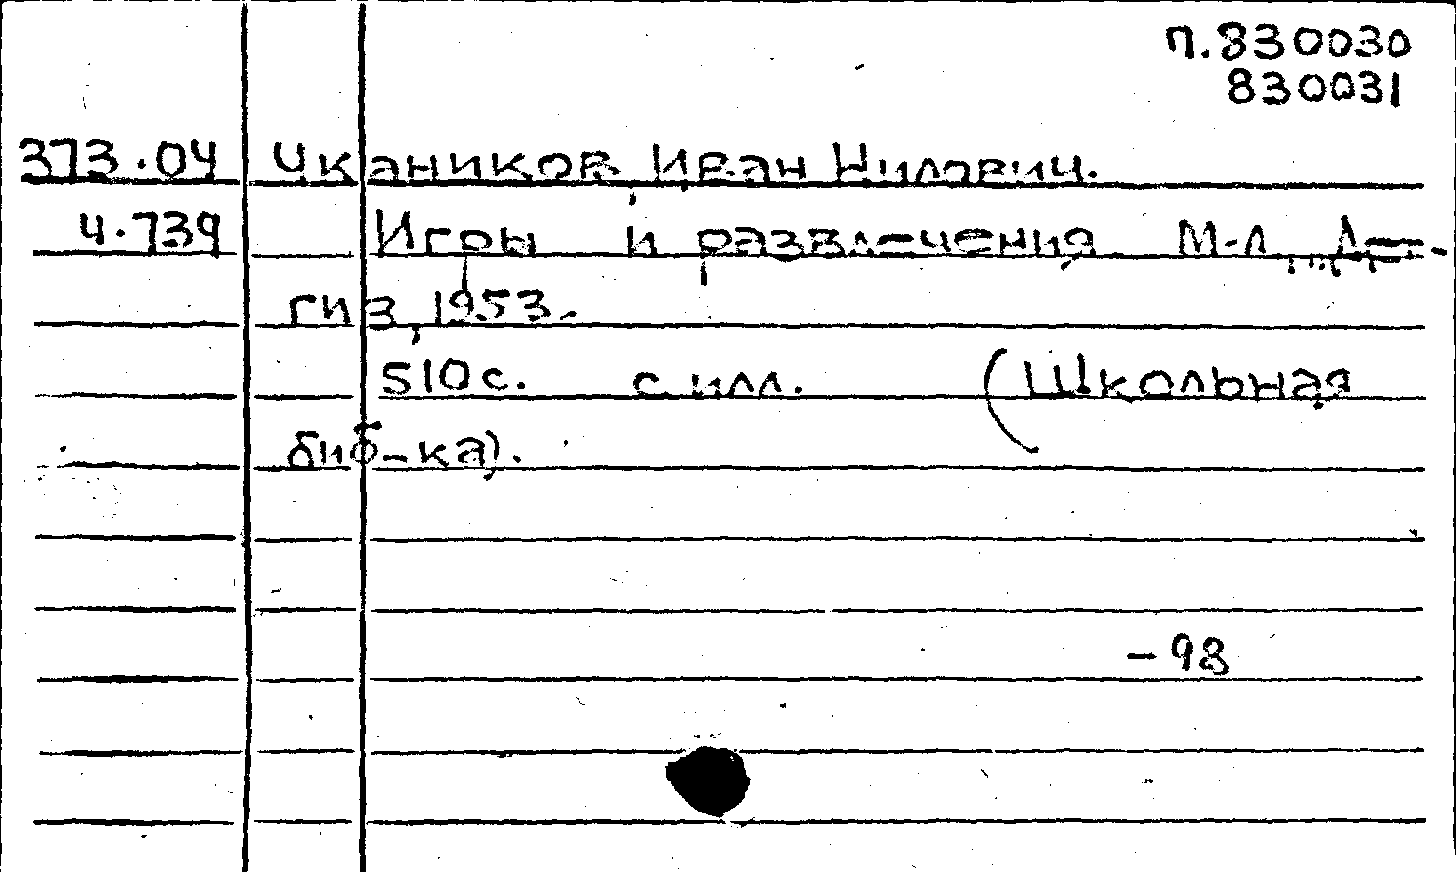 п.830030
830031
373.04 Чкаников, Иван Нилович.
Ч.739 Игры и развлечения М-Л., Дет-
гиз, 1953.
510с. с илл. (Школьная
биб-ка).
-98